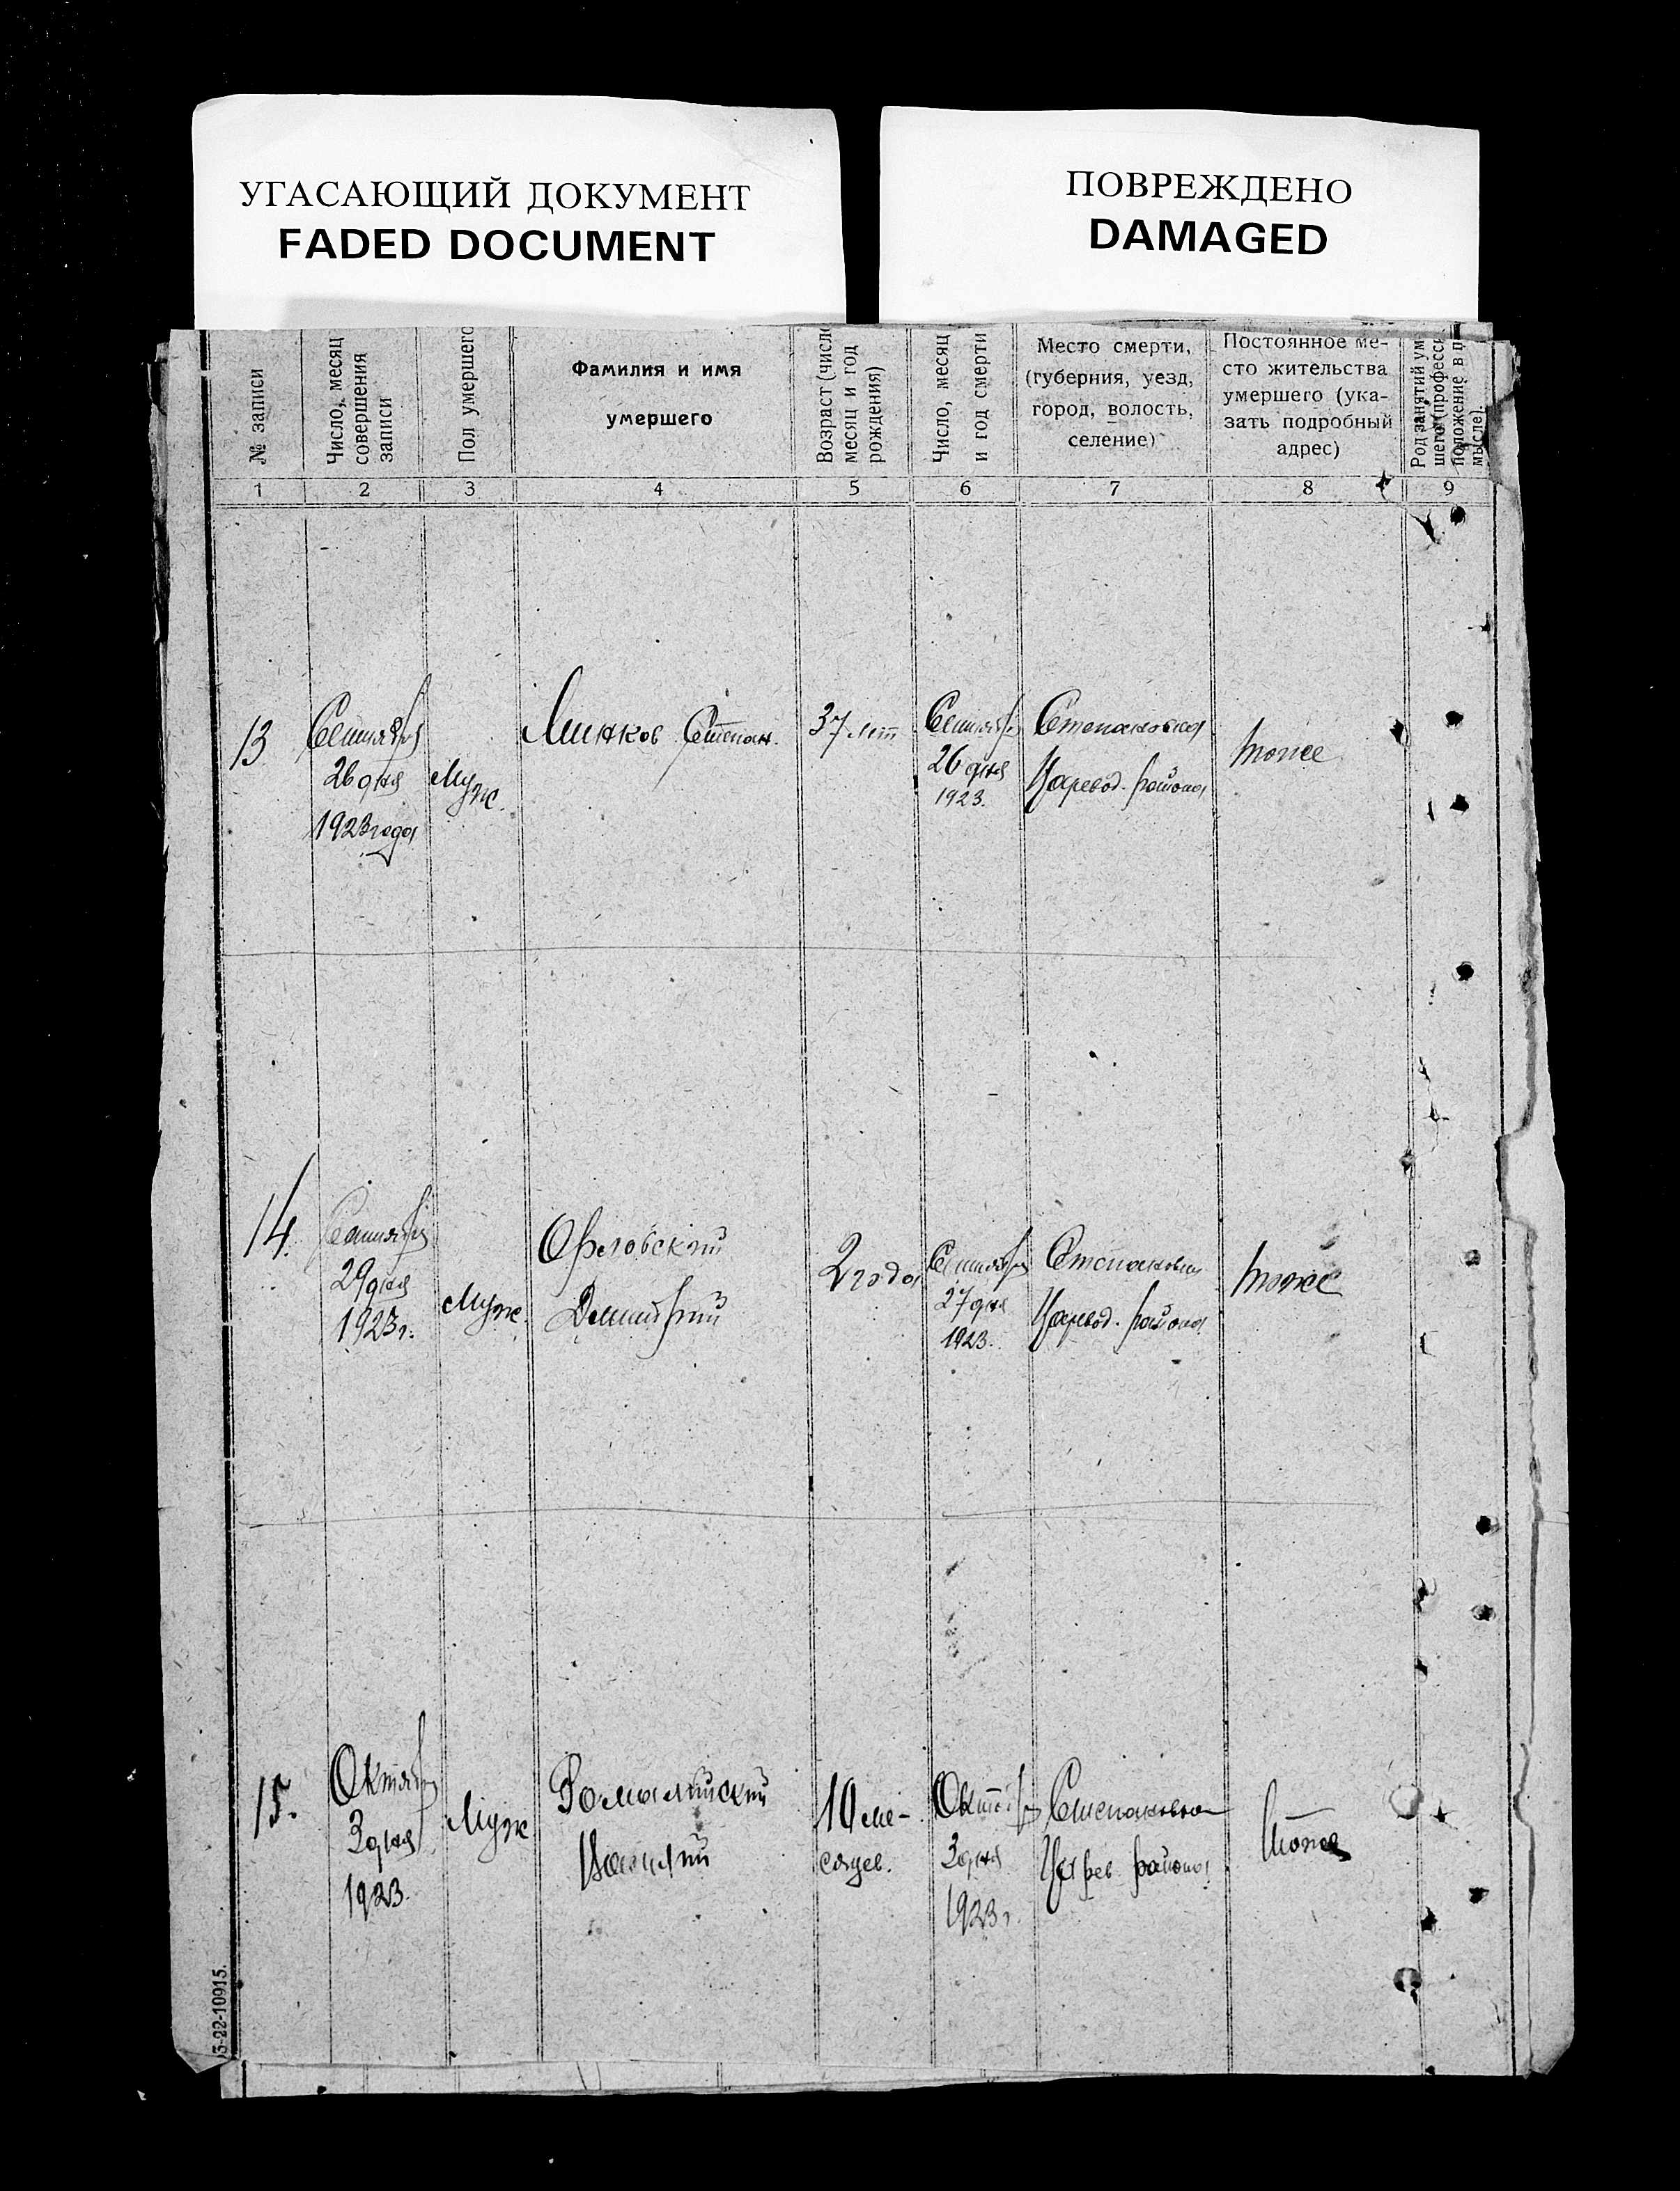 УГАСАЮЩИЙ ДОКУМЕНТ
FADED DOCUMENT
ПОВРЕЖДЕНО
DAMAGED
№ записи
Число, месяц
совершения
записи
Пол умершего
Фамилия и имя
умершего
Возраст (число
месяц и год
рождения)
Число, месяц
и год смерти
Место смерти,
(губерния, уезд,
город, волость,
селение)
Постоянное ме-
сто жительства
умершего (ука-
зать подробный
адрес)
Род занятий ум
шего (професси
положение в п
мысле).
1 2 3 4 5 6 7 8 9
13
Сентября
26 дня
1923 года
Муж.
Минков Степан.
37 лет
Сентябр.
26 дня
1923.
Степановка
Царевод. района
тоже
14.
Сентября
29 дня
1923 г.
Муж.
Орловский
Дмитрий
2 года
Сентября
27 дня
1923.
Степановка
Царевод. района
тоже
15.
Октября
3 дня
1923.
Муж
Василий
10 ме-
сяцев.
Октября
3 дня
1923 г.
Степановка
Царев. района
тоже
5-22-10915.